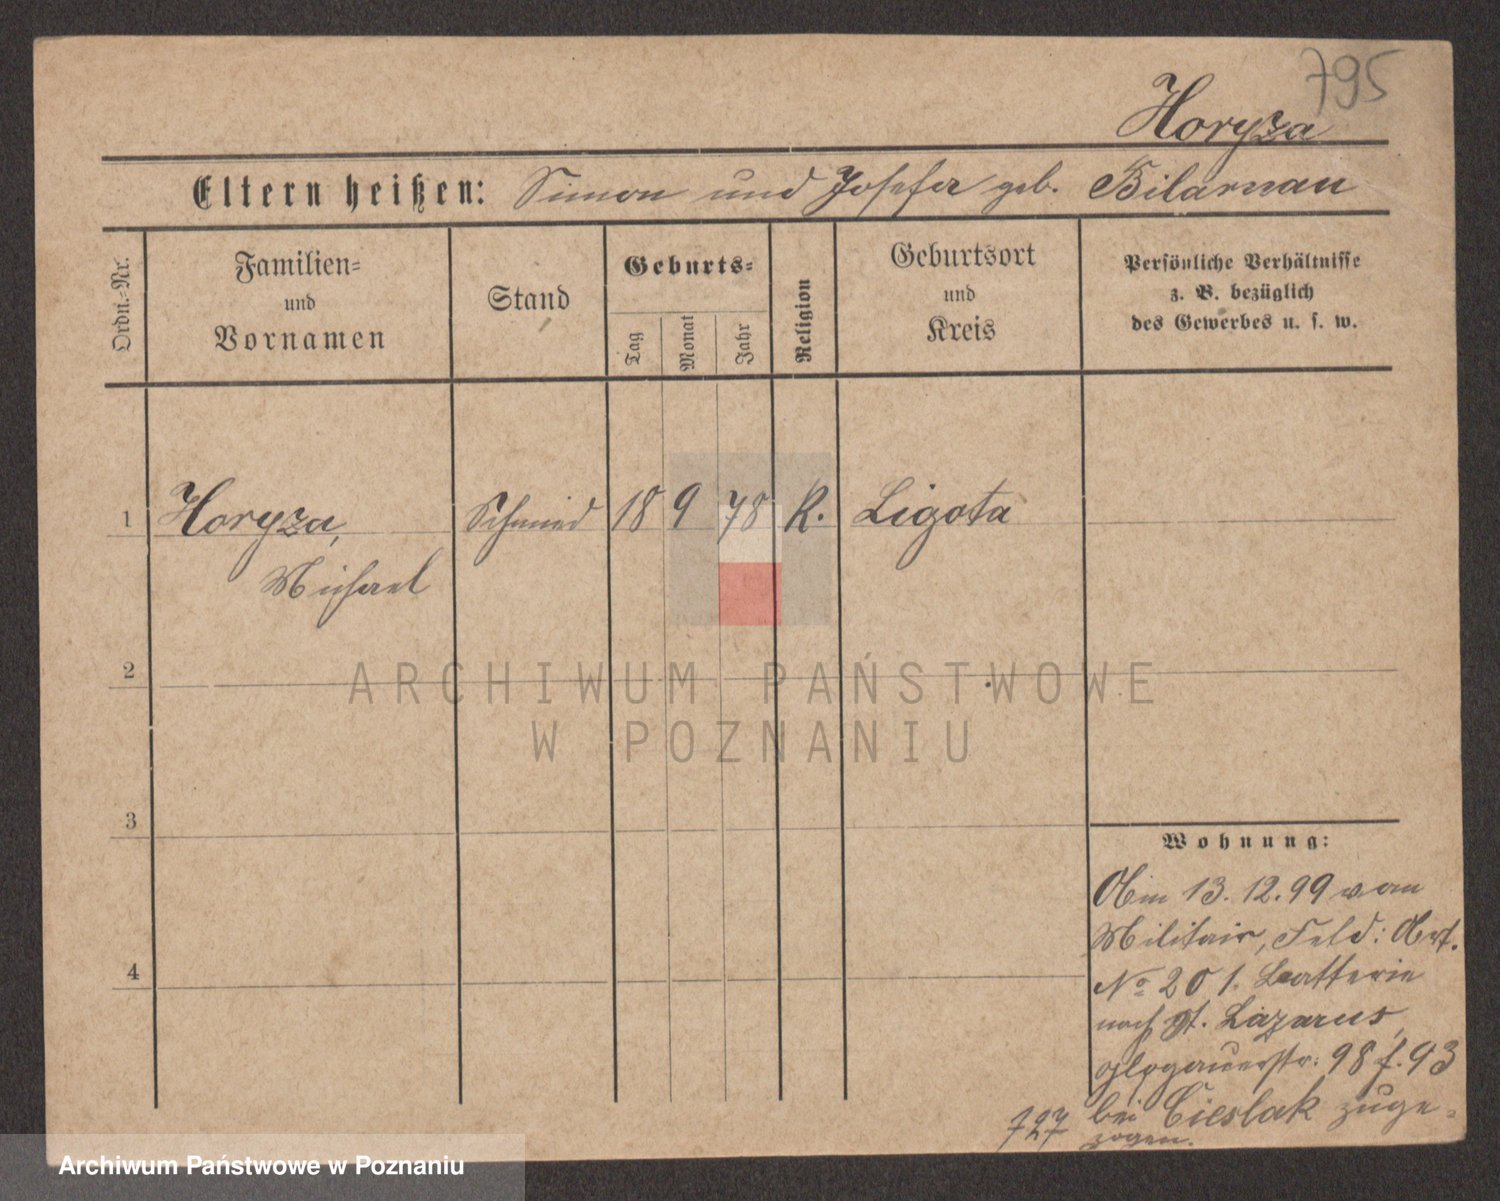 795
Horyza
Eltern heißen: Simon und Josefa geb. Bilarnau
Ordn.-Nr.
Familien-
und
Vornamen
Stand
Geburts-
Tag
Monat
Jahr
Religion
Geburtsort
und
Kreis
Persönliche Verhältnisse
z. B. bezüglich
des Gewerbes u. s. w.
1 Horyza, Schmied 18 9 78 K. Ligota
Michael
2
3
4
ARCHIWUM PAŃSTWOWE
W POZNANIU
Wohnung:
Am 13.12.99 vom
Militair, Feld: Art.
No 20 1. Batterie
nach St. Lazarus,
Glogauerstr. 98 f. 93
727 bei Cieslak zuge-
zogen.
Archiwum Państwowe w Poznaniu